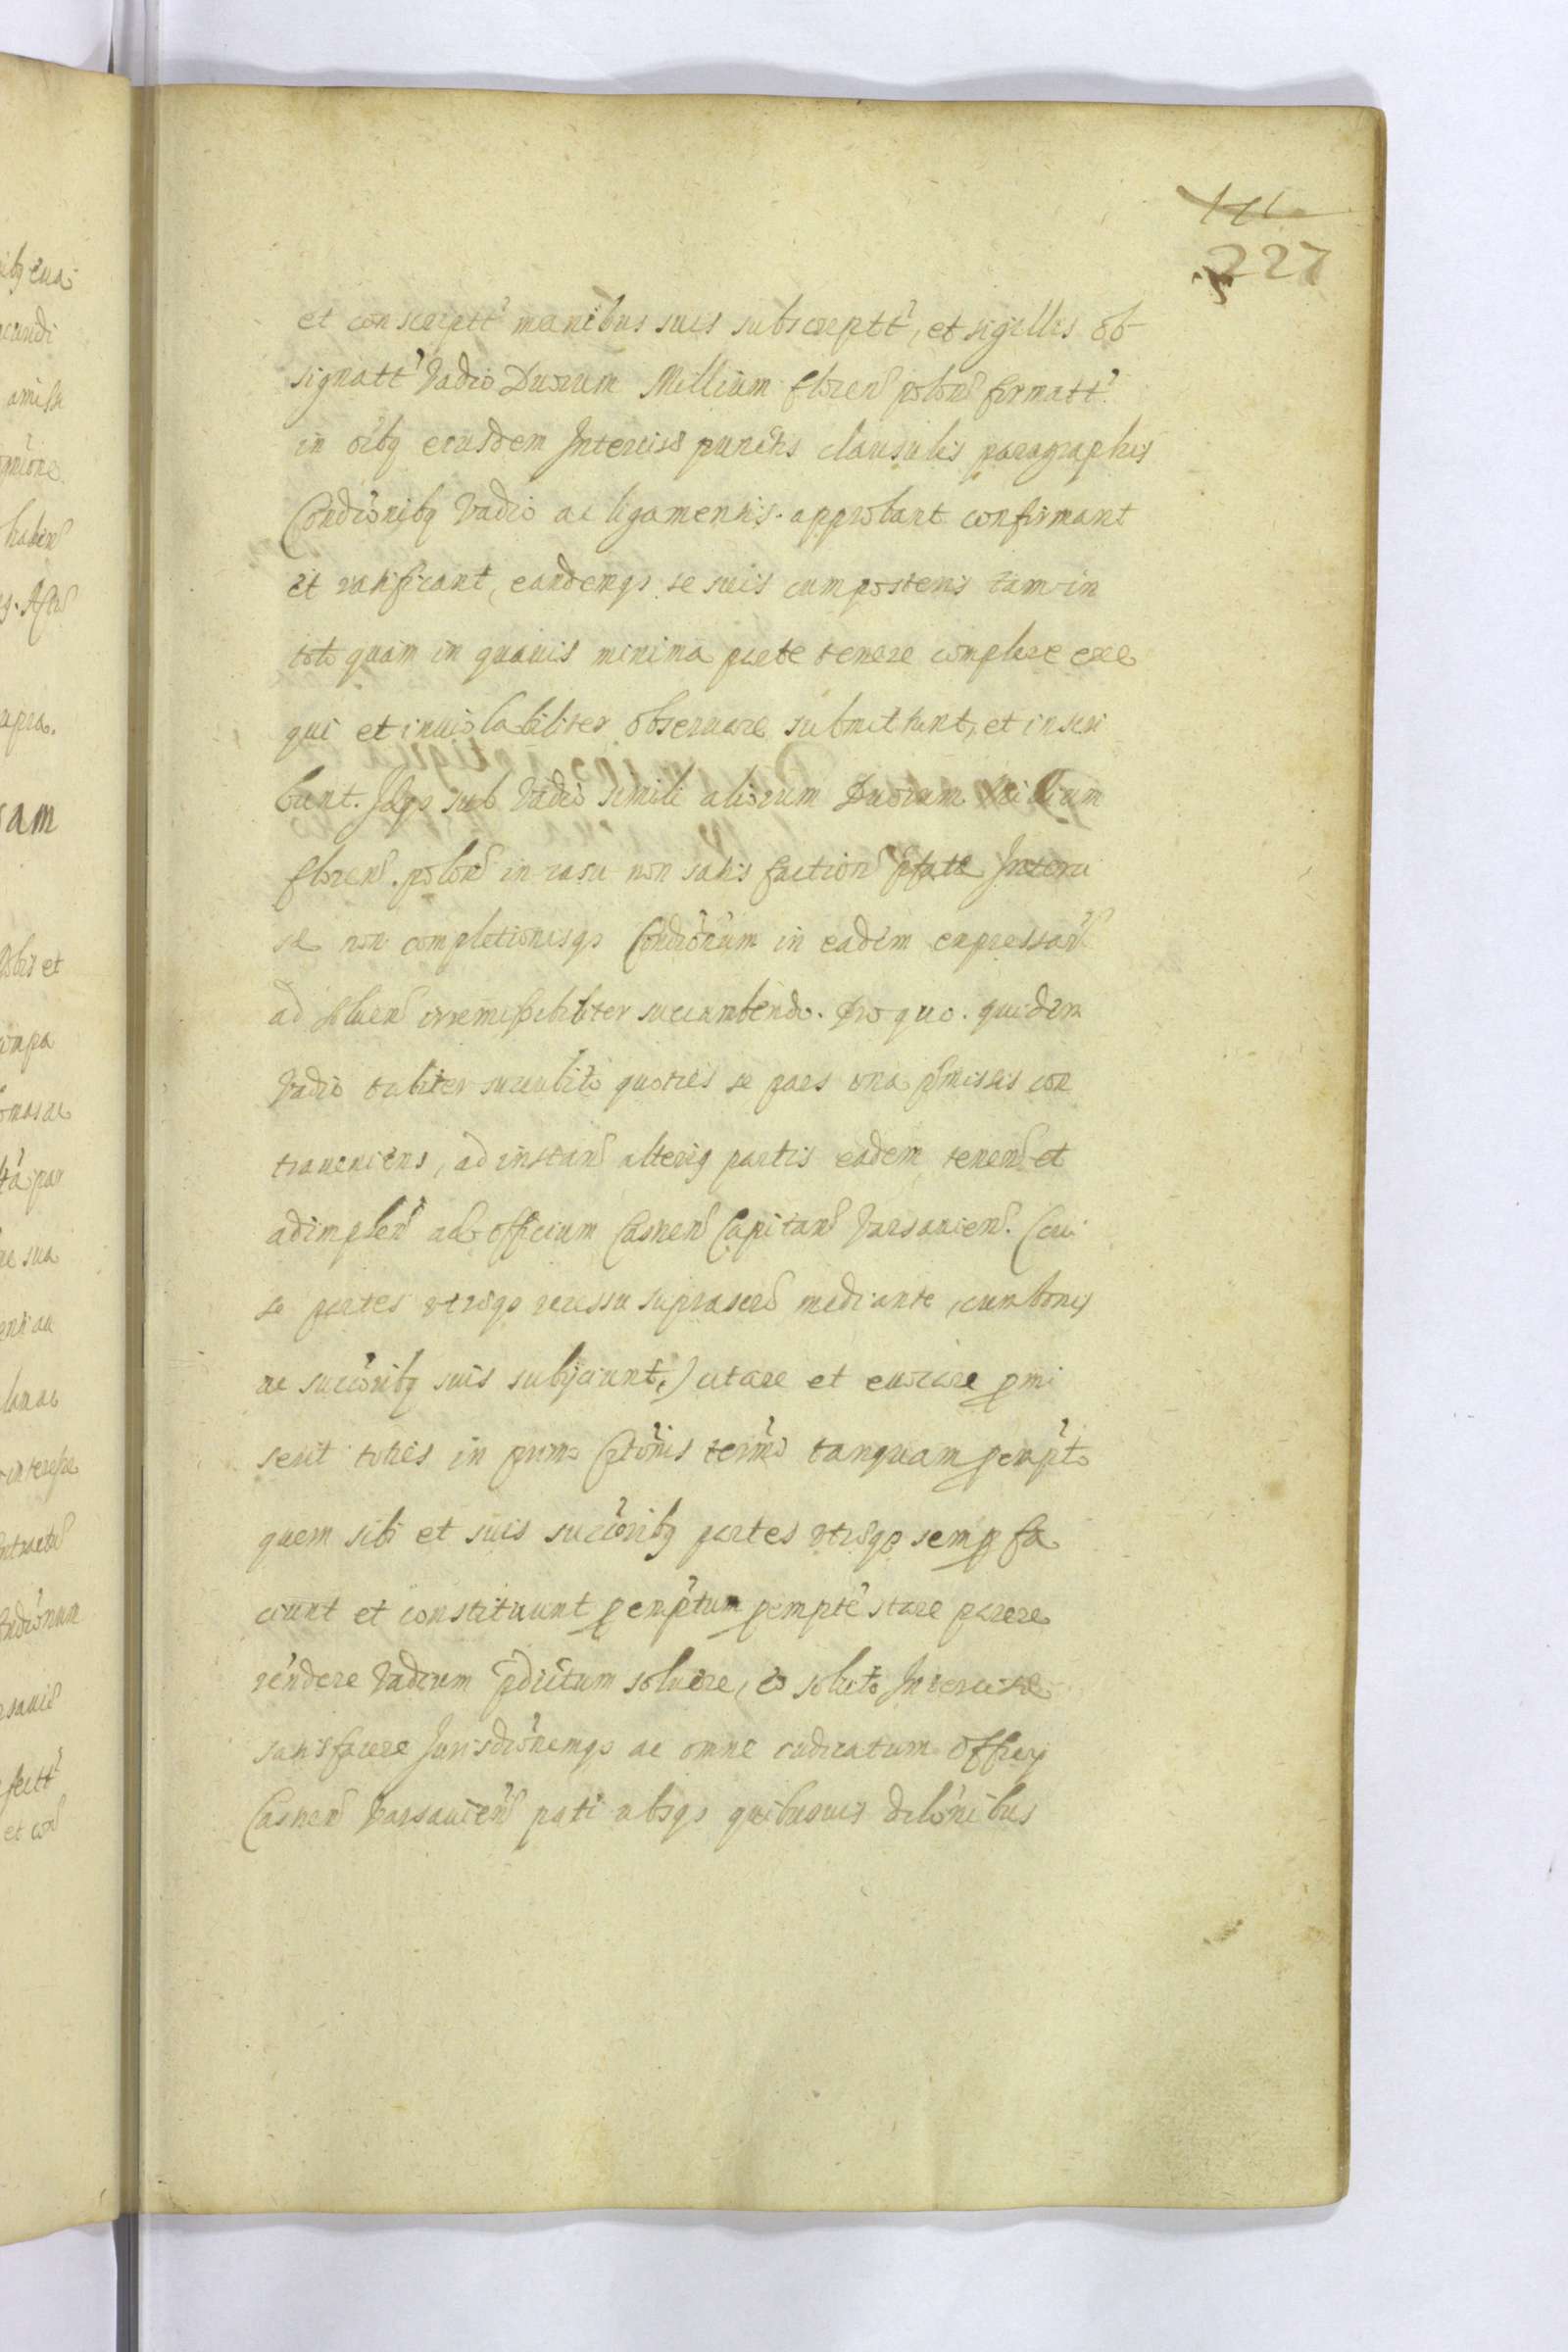 227
et conscriptt manibus suis subscriptt, et sigillis ob-
signatt Vadio Duorum Millium floren polon firmatt.
in oibq eiusdem Intercisae punctis clausulis paragraphis
Condionibq Vadio ac ligamentis approbant confirmant
et ratificant, eandemq se suis cum posteris tam in
toto quam in quavis minima parte tenere complere exe
qui et inviolabiliter observare submittunt, et inscri
bunt. Idq sub Vadio simili aliorum Duorum Millium
floren. polon in casu non satis faction pfatae Interci
sae non completionisq Condionum in eadem expressar
ad soluen irremissibiliter succumbendo. Pro quo quidem
Vadio taliter succubito quoties se pars una pmissis con
traveniens, ad instan alteriq partis eadem tenen et
adimplen ad officium Casnen Capitan Varsavien. (cui
se partes utrisq recessu suprascro mediante, cum bonis
ac succoribq suis subijciunt,) citare et evocare pmi
serit toties in primo Ctionis termo tanquam perempto
quem sibi et suis succoribq partes utrisq semp fa
ciunt et constituunt peremptum pempte stare parere
rendere Vadium pdictum soluere, eo soluto Intercisae
satisfacere Jurisdionemq ac omne iudicatum Officij
Casnen Varsavien pati absq quibusvis dilonibus